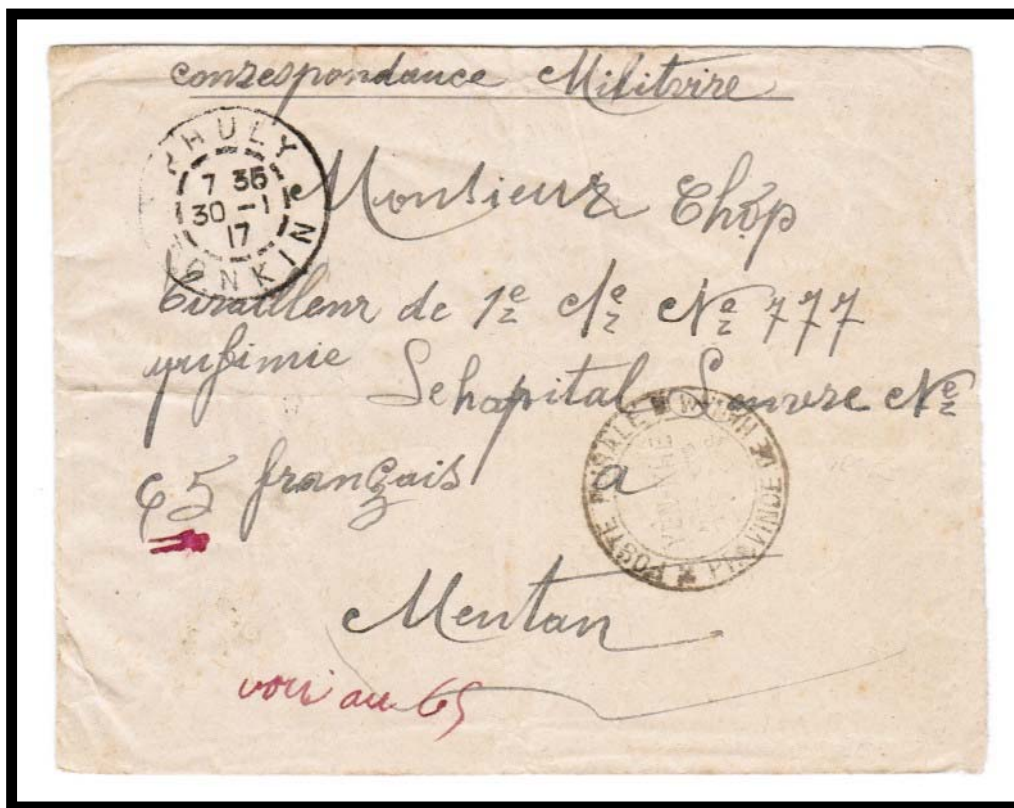 correspondance Militaire
PHULY
7 35
30 - 1
17
TONKIN
Monsieur Chóp
Tirailleur de 1e cle No 777
Sehopital No
65 français a
POSTE RURALE
PROVINCE DE
Mentan
voir au 65